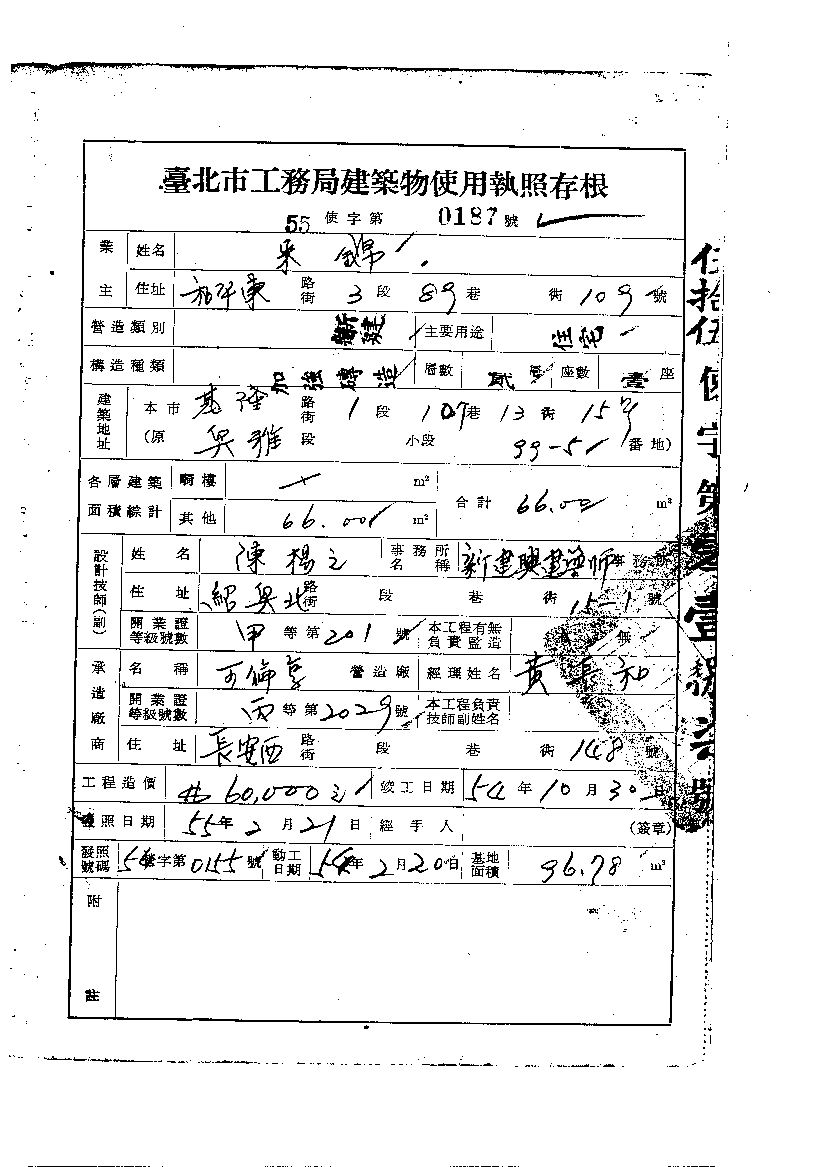 臺北市工務局建築物使用執照存根
55 使字第 0187 號
業主 姓名
住址 和平東 路街 3 段 89 巷 街 109 號
營造類別 新建 主要用途 住宅
構造種類 加強磚造 層數 貳層 座數 壹座
建築地址 本市 基隆 路街 1 段 107 巷 13 街 15號
(原 興雅 段 小段 99-5 番地)
各層建築面積總計 騎樓 m² 合計 66.00 m²
其他 66.00 m²
設計技師(副) 姓名 陳楊之 事務所名稱 新建興建築師事務所
住址 紹興北 路街 段 巷 街 15-1 號
開業證等級號數 甲 等第 201 號 本工程有無負責監造 無
承造廠商 名稱 營造廠 經理姓名 黃 和
開業證等級號數 丙 等第 2029 號 本工程負責技師副姓名
住址 長安西 路街 段 巷 街 148 號
工程造價 60,000 元 竣工日期 54 年 10 月 30 日
發照日期 55 年 2 月 21 日 經手人 (簽章)
發照號碼 54 使字第 0155 號 動工日期 54 年 2 月 20 日 基地面積 96.78 m²
附註
伍拾伍使字第 壹 號